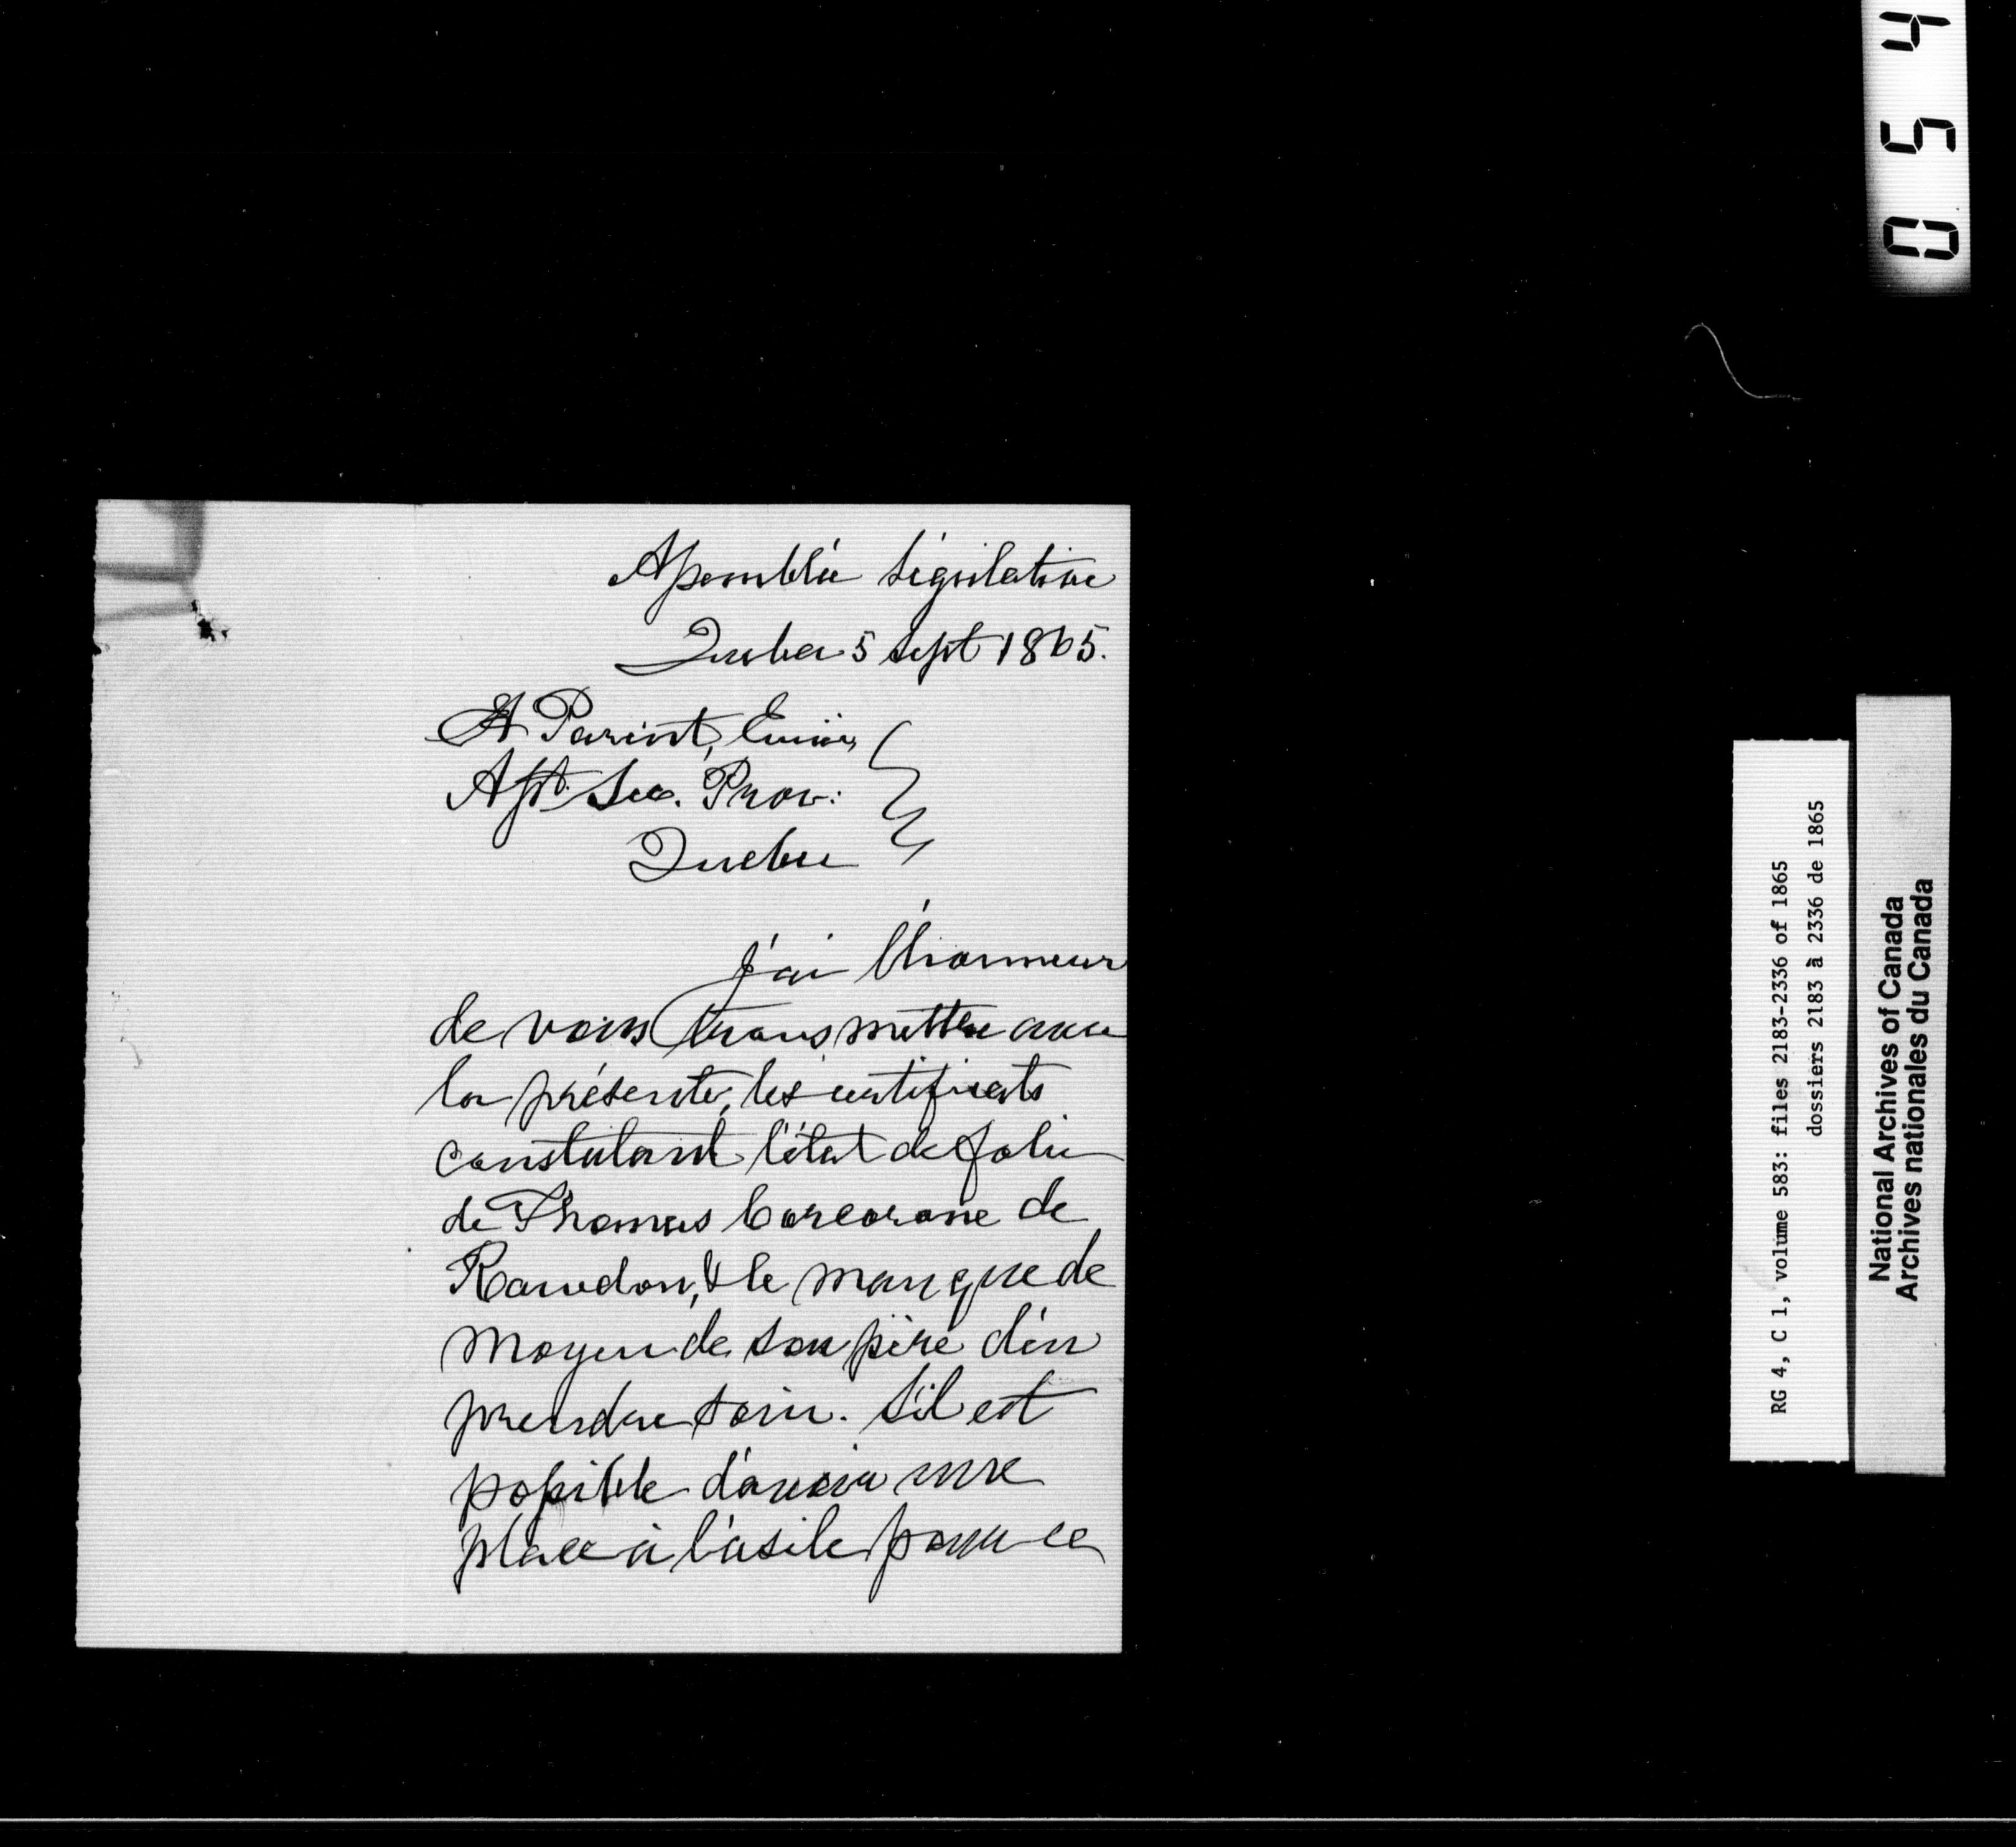 Assemblée Législative
Québec 5 Sept 1865.
E Parent, Ecuier,
Asst. Sec. Prov:
Québec
J'ai l'honneur
de vous transmettre avec
la présente, les certificats
constatant l'état de folie
de Thomas Corcorane de
Rawdon, & le manque de
moyen de son père d'en
prendre soin. S'il est
possible d'avoir une
place à l'asile pour ce
0 5 4
RG 4, C 1, volume 583: files 2183-2336 of 1865
dossiers 2183 à 2336 de 1865
National Archives of Canada
Archives nationales du Canada